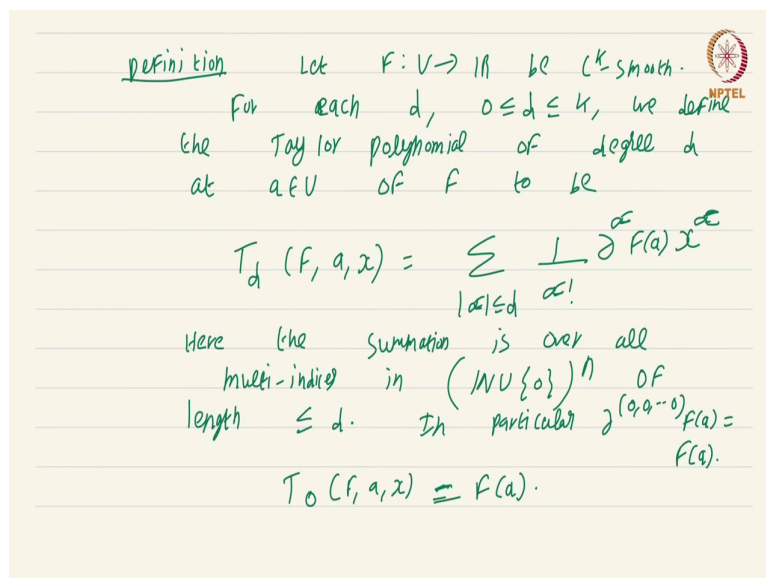 Definition Let F : U → ℝ be C^k-smooth.
NPTEL
For each d, 0 ≤ d ≤ k, we define
the Taylor polynomial of degree d
at a ∈ U of F to be
T_d (F, a, x) = ∑_{|α| ≤ d} 1/α! ∂^α F(a) x^α
Here the summation is over all
multi-indices in (ℕ ∪ {0})^n of
length ≤ d. In particular ∂^{(0,0,--0)} F(a) =
F(a).
T_0 (F, a, x) = F(a).